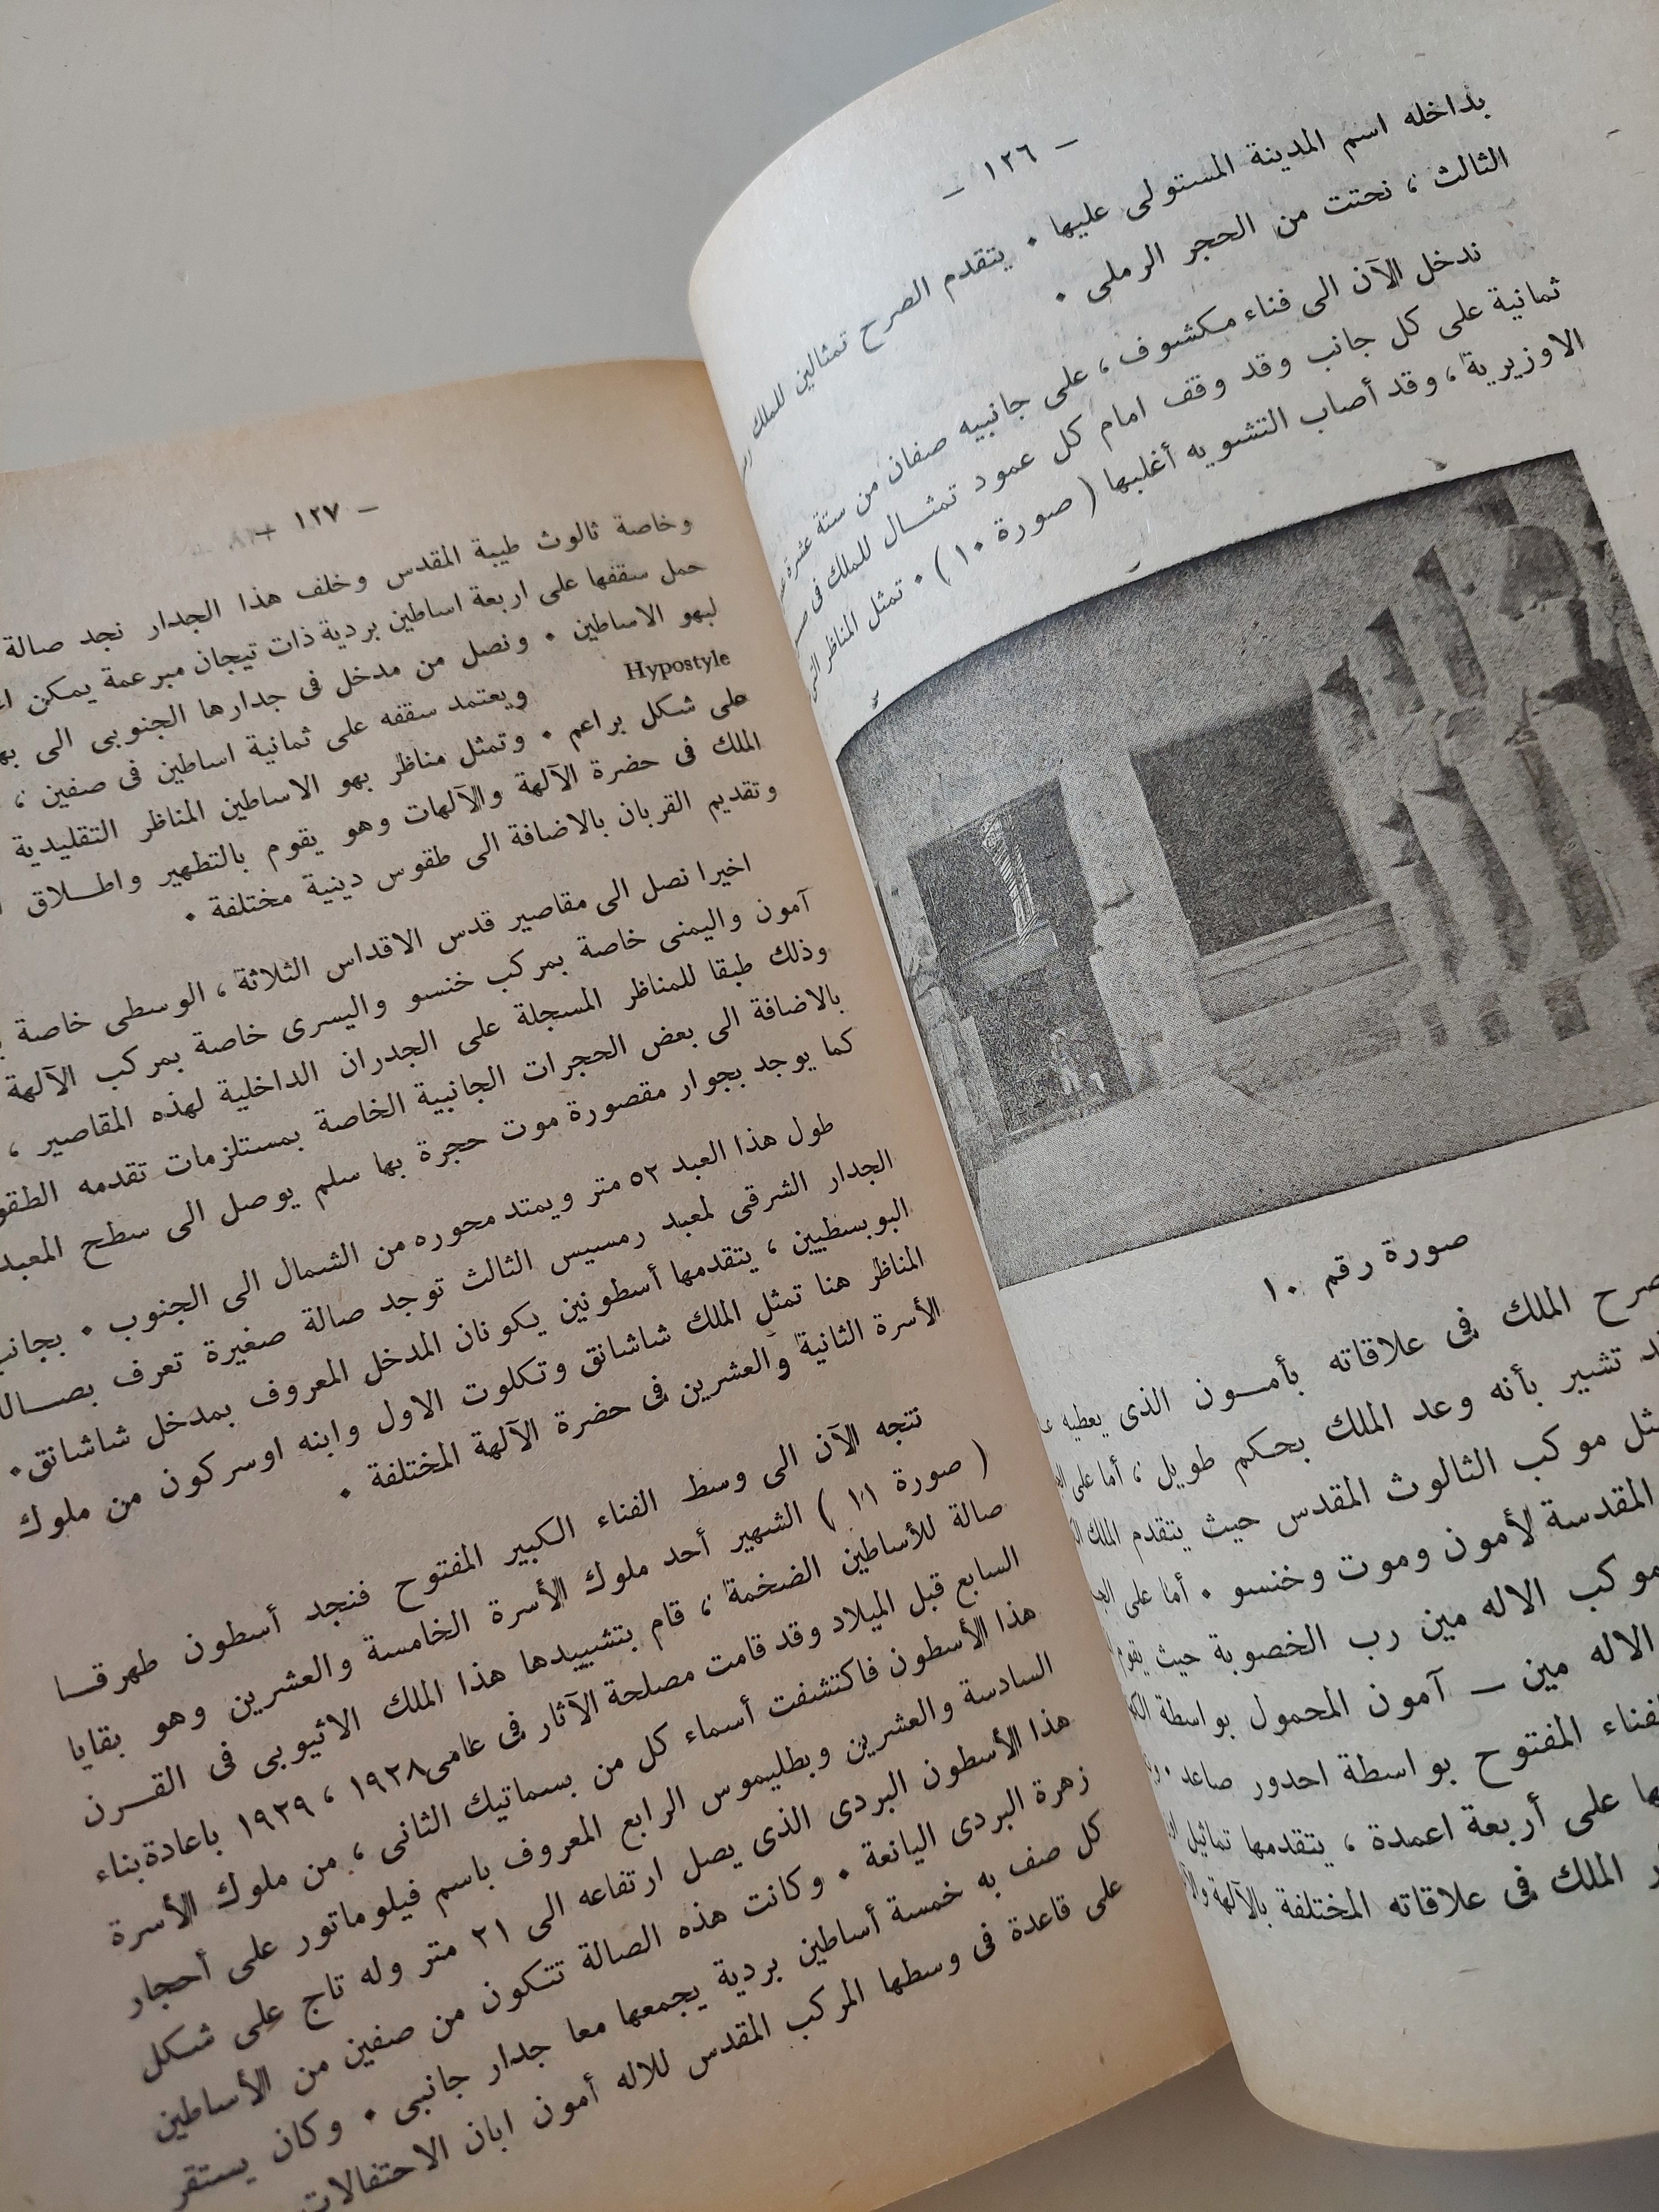 — ١٢٦ —
بداخله اسم المدينة المستولى عليها ٠ يتقدم الصرح تمثالين للملك
الثالث ، نحتت من الحجر الرملى ٠
ندخل الآن الى فناء مكشوف ، على جانبيه صفان من ستة عشرة
ثمانية على كل جانب وقد وقف امام كل عمود تمثـــال للملك فى
الاوزيرية ، وقد أصاب التشويه أغلبها ( صورة ١٠ ) ٠ تمثل المناظر
صورة رقم ١٠
الملك فى علاقاته بأمـــون الذى يعطيه
تشير بأنه وعد الملك بحكم طويل ، أما على
موكب الثالوث المقدس حيث يتقدم الملك
المقدسة لأمون وموت وخنسو ٠ أما على
موكب الاله مين رب الخصوبة حيث يقوم
الاله مين — آمون المحمول بواسطة
المفتوح بواسطة احدور صاعد ٠
على أربعة اعمدة ، يتقدمها تماثيل
الملك فى علاقاته المختلفة بالآلهة
— ١٢٧ —
وخاصة ثالوث طيبة المقدس وخلف هذا الجدار نجد صالة
حمل سقفها على اربعة اساطين بردية ذات تيجان مبرعمة يمكن
لبهو الاساطين ٠ ونصل من مدخل فى جدارها الجنوبى الى
Hypostyle ويعتمد سقفه على ثمانية اساطين فى صفين ،
على شكل براعم ٠ وتمثل مناظر بهو الاساطين المناظر التقليدية
الملك فى حضرة الآلهة والآلهات وهو يقوم بالتطهير واطـــلاق
وتقديم القربان بالاضافة الى طقوس دينية مختلفة ٠
اخيرا نصل الى مقاصير قدس الاقداس الثلاثة ، الوسطى خاصة
آمون واليمنى خاصة بمركب خنسو واليسرى خاصة بمركب الآلهة
وذلك طبقا للمناظر المسجلة على الجدران الداخلية لهذه المقاصير ،
بالاضافة الى بعض الحجرات الجانبية الخاصة بمستلزمات تقدمه
كما يوجد بجوار مقصورة موت حجرة بها سلم يوصل الى سطح المعبد
طول هذا العبد ٥٢ متر ويمتد محوره من الشمال الى الجنوب ٠
الجدار الشرقى لمعبد رمسيس الثالث توجد صالة صغيرة تعرف
البوبسطيين ، يتقدمها أسطونين يكونان المدخل المعروف بمدخل شاشانق ٠
المناظر هنا تمثل الملك شاشانق وتكلوت الاول وابنه اوسركون من ملوك
الأسرة الثانية والعشرين فى حضرة الآلهة المختلفة ٠
نتجه الآن الى وسط الفناء الكبير المفتوح فنجد أسطون طهرقـــا
( صورة ١١ ) الشهير أحد ملوك الأسرة الخامسة والعشرين وهو بقايا
صالة للأساطين الضخمة ، قام بتشييدها هذا الملك الاثيوبى فى القـــرن
السابع قبل الميلاد وقد قامت مصلحة الآثار فى عامى ١٩٢٨ ، ١٩٢٩ باعادة بناء
هذا الأسطون فاكتشفت أسماء كل من بسماتيك الثانى ، من ملوك الأسرة
السادسة والعشرين وبطليموس الرابع المعروف باسم فيلوماتور على أحجار
هذا الأسطون البردى الذى يصل ارتفاعه الى ٢١ متر وله تاج على شكل
زهرة البردى اليانعة ٠ وكانت هذه الصالة تتكون من صفين من الأساطين
كل صف به خمسة أساطين بردية يجمعها معا جدار جانبى ٠ وكان يستقر
على قاعدة فى وسطها المركب المقدس للاله أمون ابان الاحتفالات